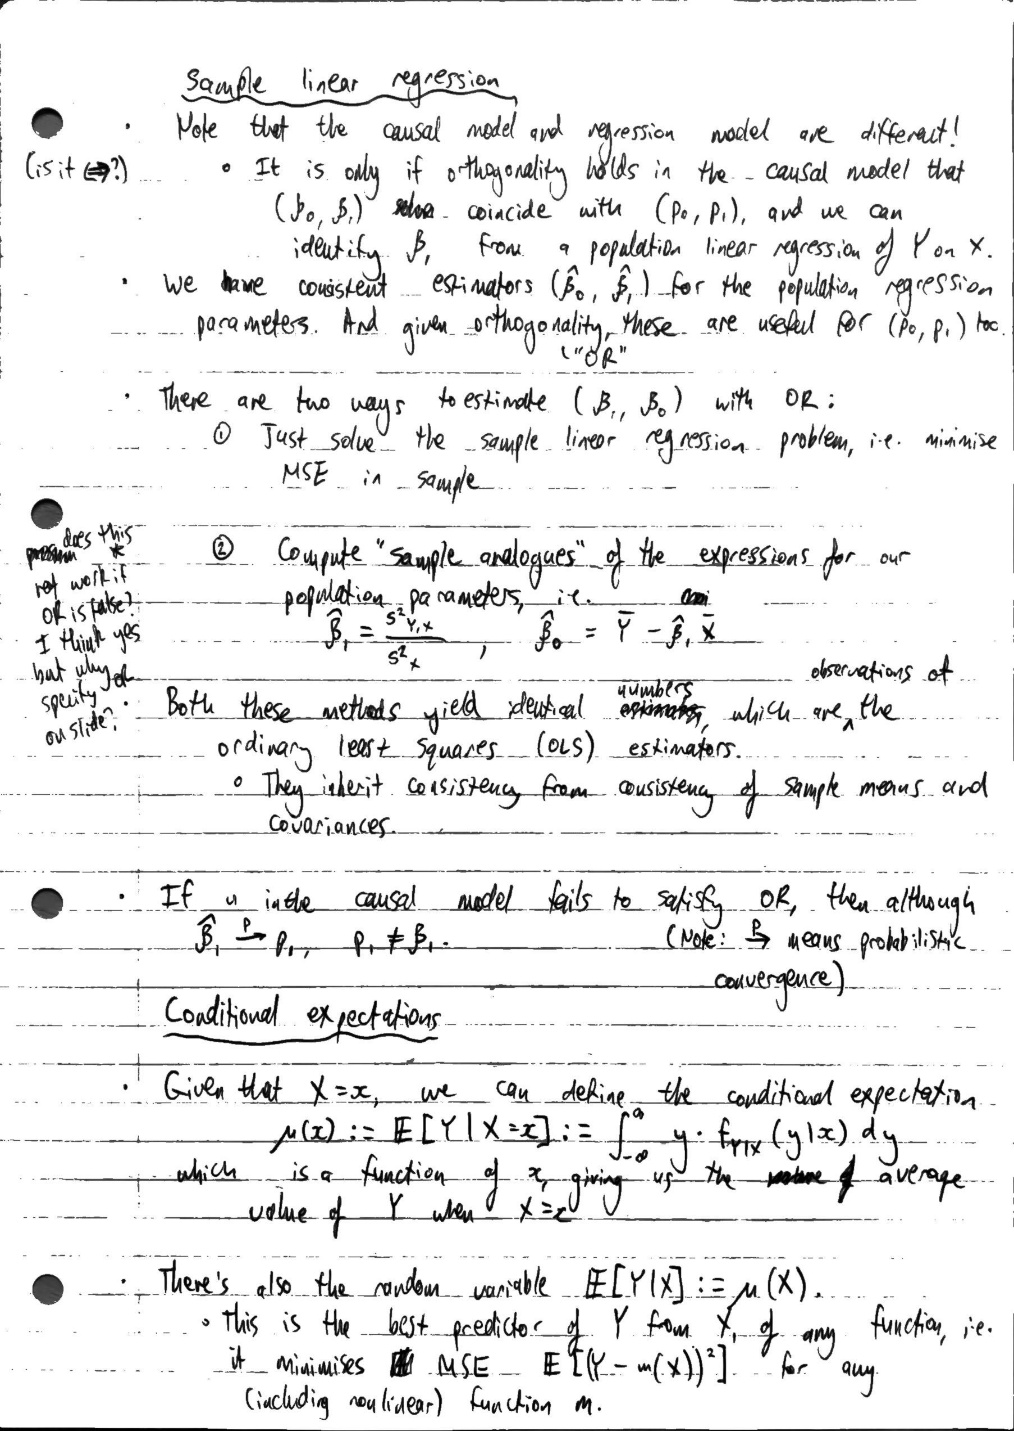 Sample linear regression
· Note that the causal model and regression model are different!
(is it ⟺?) ∘ It is only if orthogonality holds in the causal model that
(β₀, β₁) coincide with (ρ₀, ρ₁), and we can
identify β₁ from a population linear regression of Y on X.
· We have consistent estimators (β̂₀, β̂₁) for the population regression
parameters. And given orthogonality, these are useful for (ρ₀, ρ₁) too.
"OR"
· There are two ways to estimate (β₁, β₀) with OR:
① Just solve the sample linear regression problem, i.e. minimise
MSE in sample
does this *
not work if
OR is false?
I think yes
but why
specify
on slide?
② Compute "sample analogues" of the expressions for our
population parameters, i.e.
β̂₁ = S²Y,X / S²X , β̂₀ = Ȳ - β̂₁ X̄
· Both these methods yield identical numbers, which are observations of the
ordinary least squares (OLS) estimators.
∘ They inherit consistency from consistency of sample means and
covariances.
· If u in the causal model fails to satisfy OR, then although
β̂₁ →ᵖ ρ₁, ρ₁ ≠ β₁. (Note: →ᵖ means probabilistic
convergence)
Conditional expectations
· Given that X = x, we can define the conditional expectation
μ(x) := E[Y | X = x] := ∫_{-∞}^{∞} y · f_{Y|X}(y|x) dy
which is a function of x, giving us the average
value of Y when X = x
· There's also the random variable E[Y|X] := μ(X).
∘ This is the best predictor of Y from X, of any function, i.e.
it minimises MSE E[(Y - m(X))²] for any
(including nonlinear) function m.